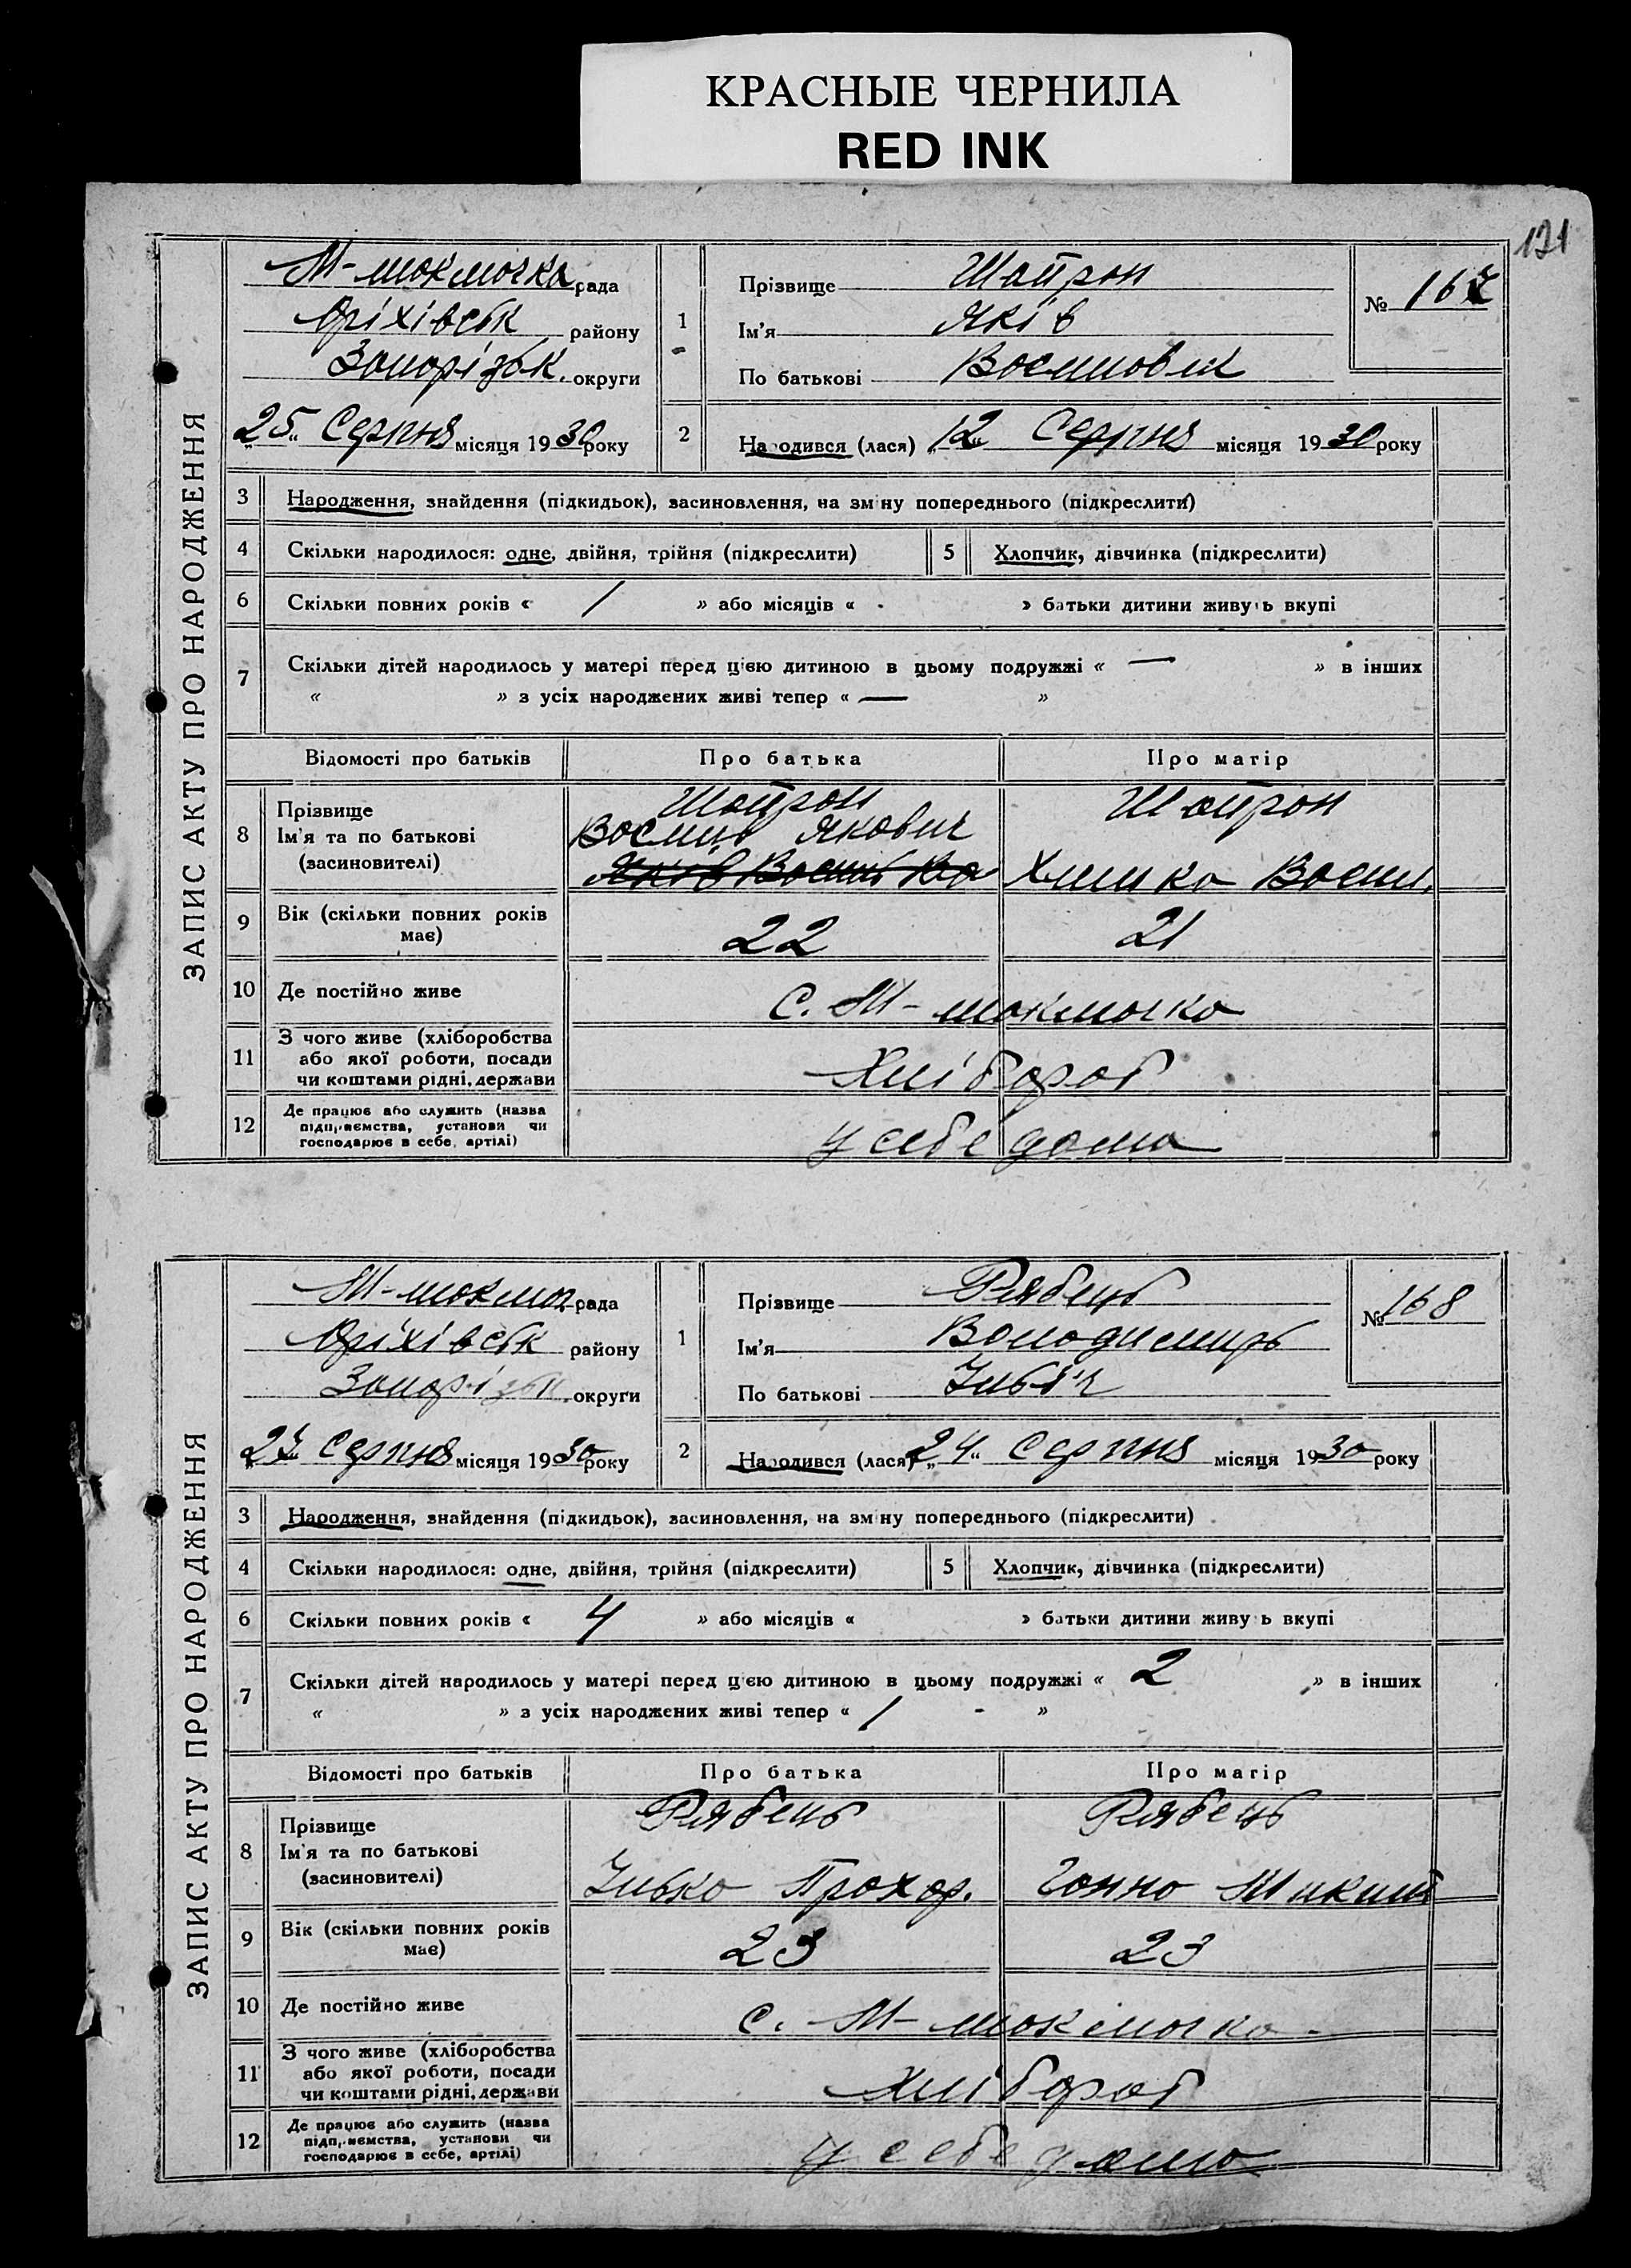 КРАСНЫЕ ЧЕРНИЛА
RED INK
121
ЗАПИС АКТУ ПРО НАРОДЖЕННЯ
М-токмачка рада
Оріхівськ району
Запорізьк. округи
„25“ Серпня місяця 1930 року
1
Прізвище Шапрон
Ім'я Яків
По батькові
№ 167
2
Народився (лася) „12“ Серпня місяця 1930 року
3 Народження, знайдення (підкидьок), засиновлення, на зміну попереднього (підкреслити)
4 Скільки народилося: одне, двійня, трійня (підкреслити)
5 Хлопчик, дівчинка (підкреслити)
6 Скільки повних років « 1 » або місяців « » батьки дитини живуть вкупі
7 Скільки дітей народилось у матері перед цією дитиною в цьому подружжі « — » в інших
« » з усіх народжених живі тепер « — »
Відомості про батьків Про батька Про матір
8 Прізвище
Ім'я та по батькові
(засиновителі)
Шапрон
Якович
Шапрон
9 Вік (скільки повних років має) 22 21
10 Де постійно живе с. М-токмачка
11 З чого живе (хліборобства
або якої роботи, посади
чи коштами рідні, держави
Хлібороб
12 Де працює або служить (назва
підприємства, установи чи
господарює в себе, артілі)
у себе дома
ЗАПИС АКТУ ПРО НАРОДЖЕННЯ
М-токмач. рада
Оріхівськ району
Запорізьк. округи
„27“ Серпня місяця 1930 року
1
Прізвище Рябець
Ім'я Володимирь
По батькові Ількіч
№ 168
2
Народився (лася) „24“ Серпня місяця 1930 року
3 Народження, знайдення (підкидьок), засиновлення, на зміну попереднього (підкреслити)
4 Скільки народилося: одне, двійня, трійня (підкреслити)
5 Хлопчик, дівчинка (підкреслити)
6 Скільки повних років « 4 » або місяців « » батьки дитини живуть вкупі
7 Скільки дітей народилось у матері перед цією дитиною в цьому подружжі « 2 » в інших
« » з усіх народжених живі тепер « 1 - »
Відомості про батьків Про батька Про матір
8 Прізвище
Ім'я та по батькові
(засиновителі)
Рябець
Ілько Прохор.
Рябець
Ганна Микит
9 Вік (скільки повних років має) 23 23
10 Де постійно живе с. М-токмачка
11 З чого живе (хліборобства
або якої роботи, посади
чи коштами рідні, держави
Хлібороб
12 Де працює або служить (назва
підприємства, установи чи
господарює в себе, артілі)
у себе дома